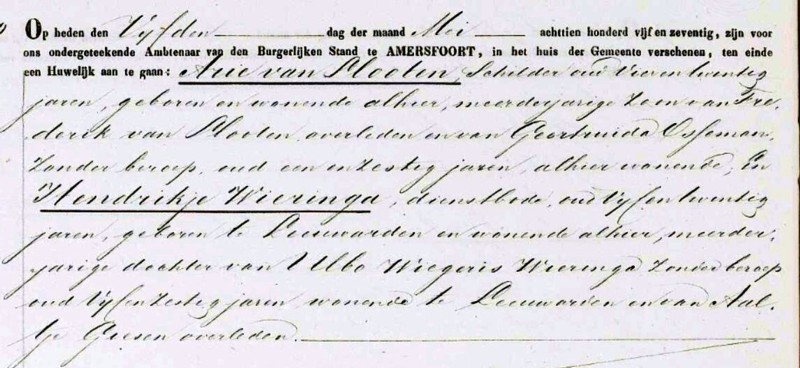 Op heden den Vijfden dag der maand Mei achttien honderd vijf en zeventig, zijn voor
ons ondergeteekende Ambtenaar van den Burgerlijken Stand te AMERSFOORT, in het huis der Gemeente verschenen, ten einde
een Huwelijk aan te gaan: Arie van Slooten, Schilder oud Vier en twintig
jaren, geboren en wonende alhier, meerderjarige Zoon van Fre-
derik van Slooten, overleden en van Geertruida Osseman,
zonder beroep, oud een en zestig jaren, alhier wonende, En
Hendrikje Wieringa, dienstbode, oud Vijf en twintig
jaren, geboren te Leeuwarden en wonende alhier, meerder-
jarige dochter van Ulbo Wiegeris Wieringa zonder beroep
oud Vijf en zestig jaren wonende te Leeuwarden en van Aal-
tje Giesen overleden.